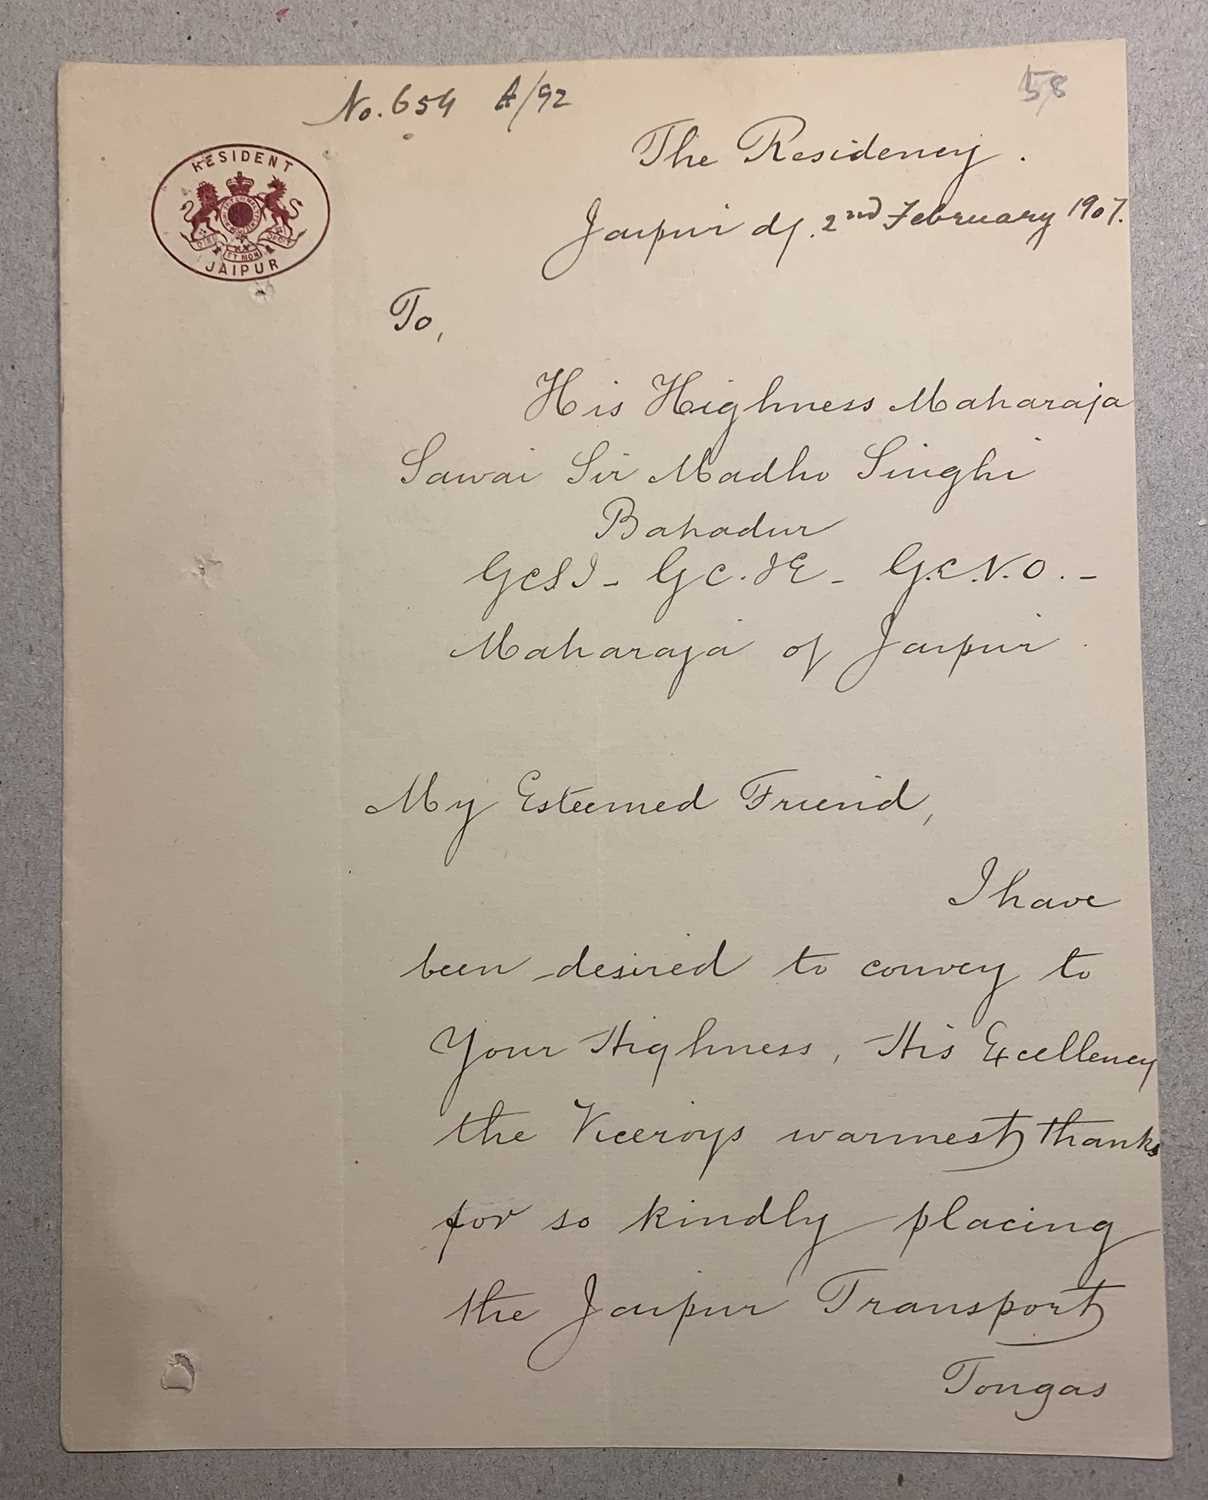 No. 654 A/92
58
RESIDENT
JAIPUR
The Residency.
Jaipur d/. 2nd February 1907.
To,
His Highness Maharaja
Sawai Sir Madho Singhi
Bahadur
GCSI - GC.IE - G.C.V.O. -
Maharaja of Jaipur.
My Esteemed Friend,
I have
been desired to convey to
Your Highness, His Excellency
the Viceroys warmest thanks
for so kindly placing
the Jaipur Transport
Tongas